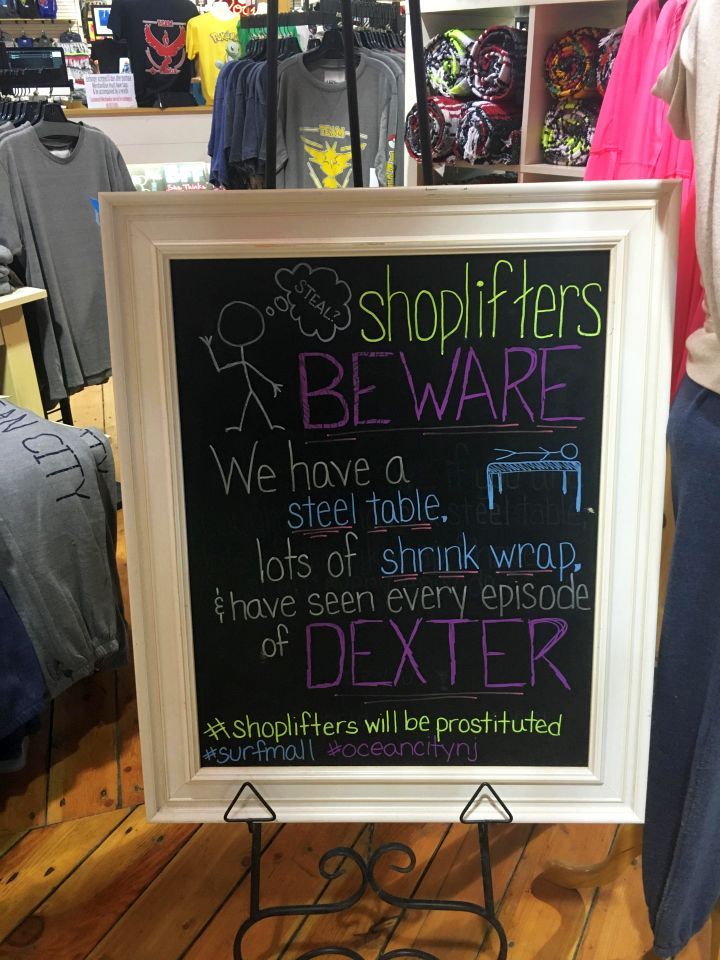 TEAM
POKÉMON
TEAM
AN CITY
STEAL?
shoplifters
BEWARE
We have a
steel table,
lots of shrink wrap,
& have seen every episode
of DEXTER
#shoplifters will be prostituted
#surfmall #oceancitynj